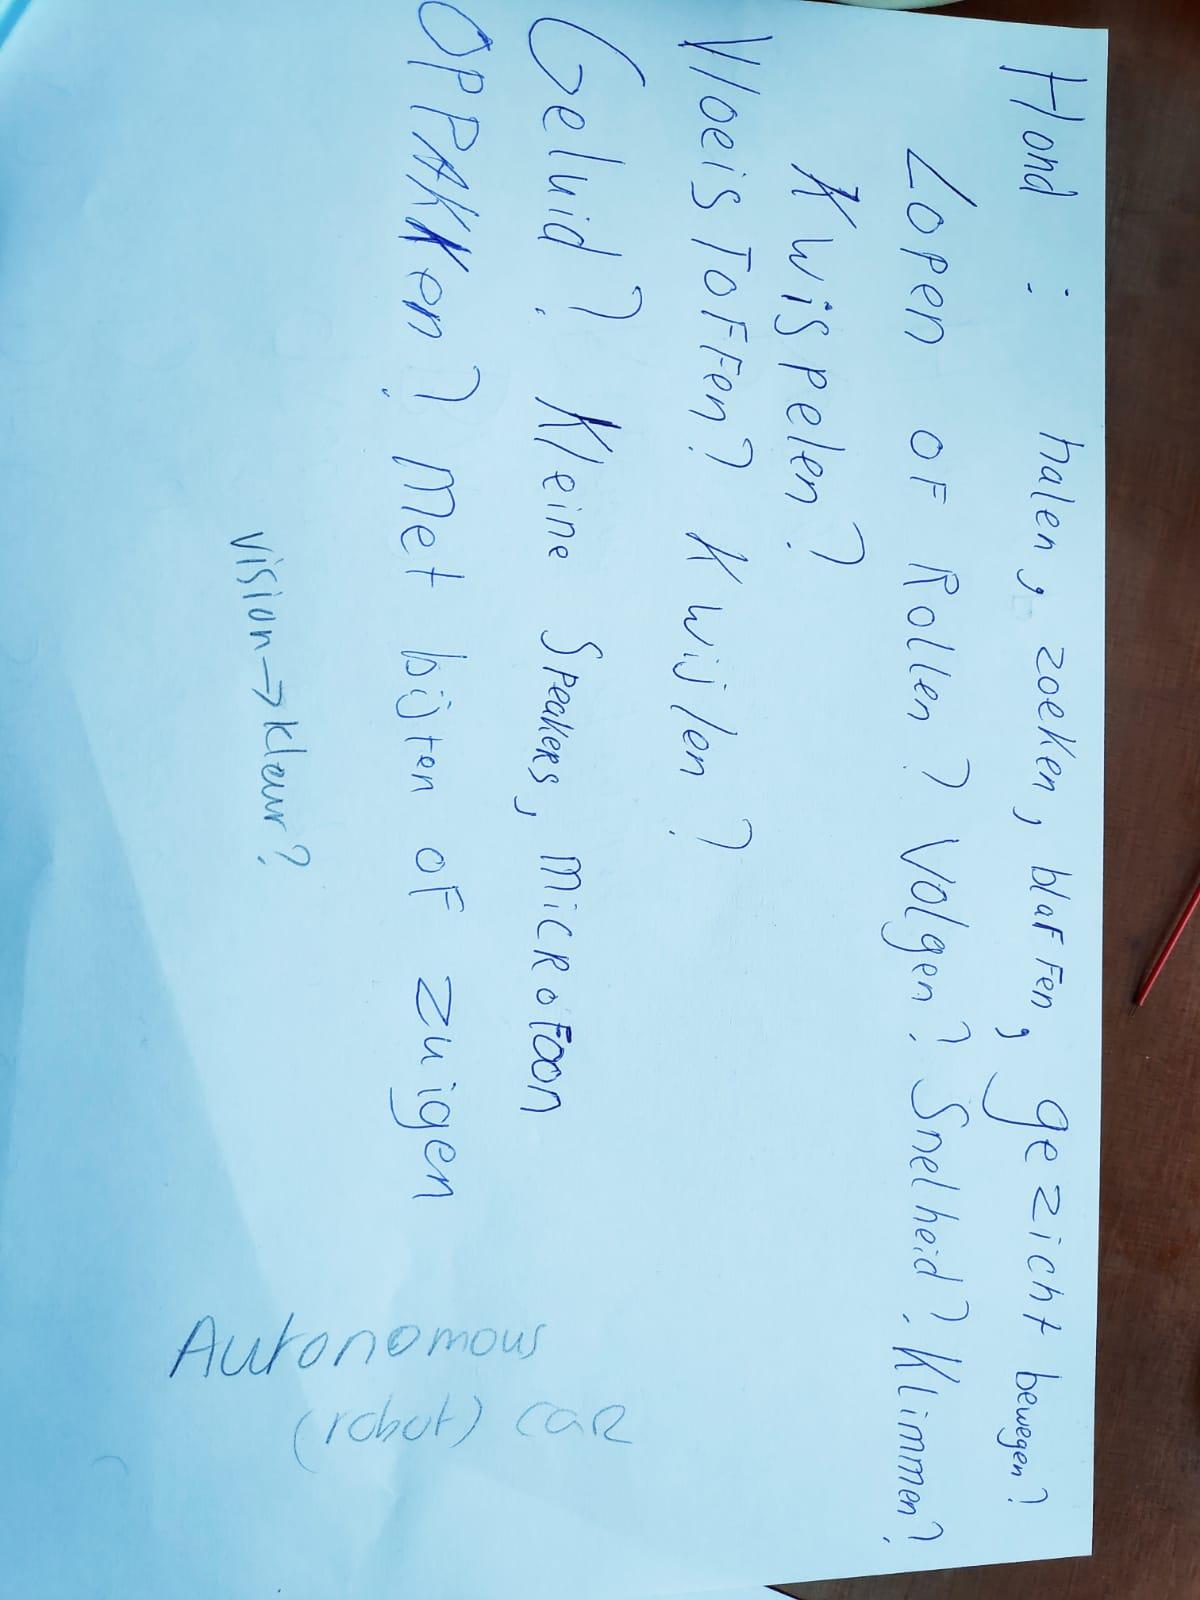 Hond : halen, zoeken, blaffen, gezicht bewegen?
Lopen of Rollen? Volgen? Snelheid? Klimmen?
Kwispelen?
Vloeistoffen? Kwijlen?
Geluid? Kleine Speakers, microfoon
OPPAKKen? Met bijten of zuigen
vision → kleur?
Autonomous
(robot) car